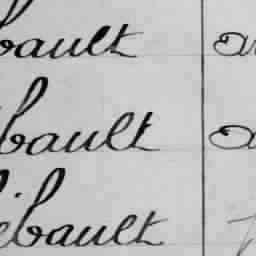 bault a
bault a
ebault